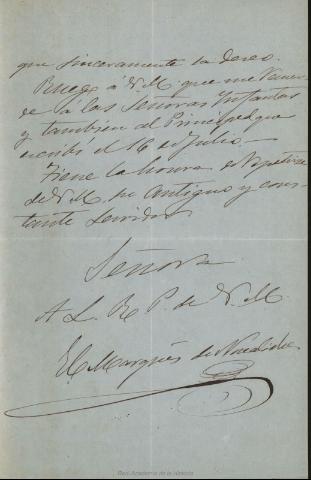 que sinceramente la deseo.
Ruego á V.M. que me recuer-
de á las Señoras Infantas
y tambien al Principe que
escribí el 16 de Julio.
Tiene la honra de repetirse
de V.M. su antiguo y cons-
tante servidor
Señora
A L. R. P. de V.M.
El Marqués de
Real Academia de la Historia